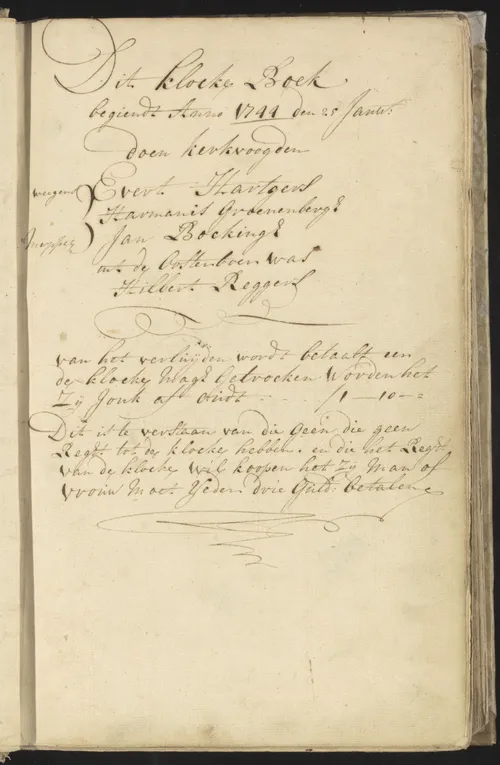 Dit klocke Boek
begiendt Anno 1744 den 25 Janus.
doen kerkvoogden
wegens
Meppel
Evert Hartgers
Harmanis Groenenberg
Jan Bocking
uit de Oosterboer was
Hilbert Reggers
van het verluijden wordt betaalt een
de klocke Mag Getrocken worden het
Zij Jonk oft Oudt - - - - /1 - 10 - =
Dit is te verstaan van die Geen die geen
Regt tot de klocke hebben. en die het Regt
van de klocke wil koopen het Zij Man of
vrouw Moet Ieder drie Guld. betalen